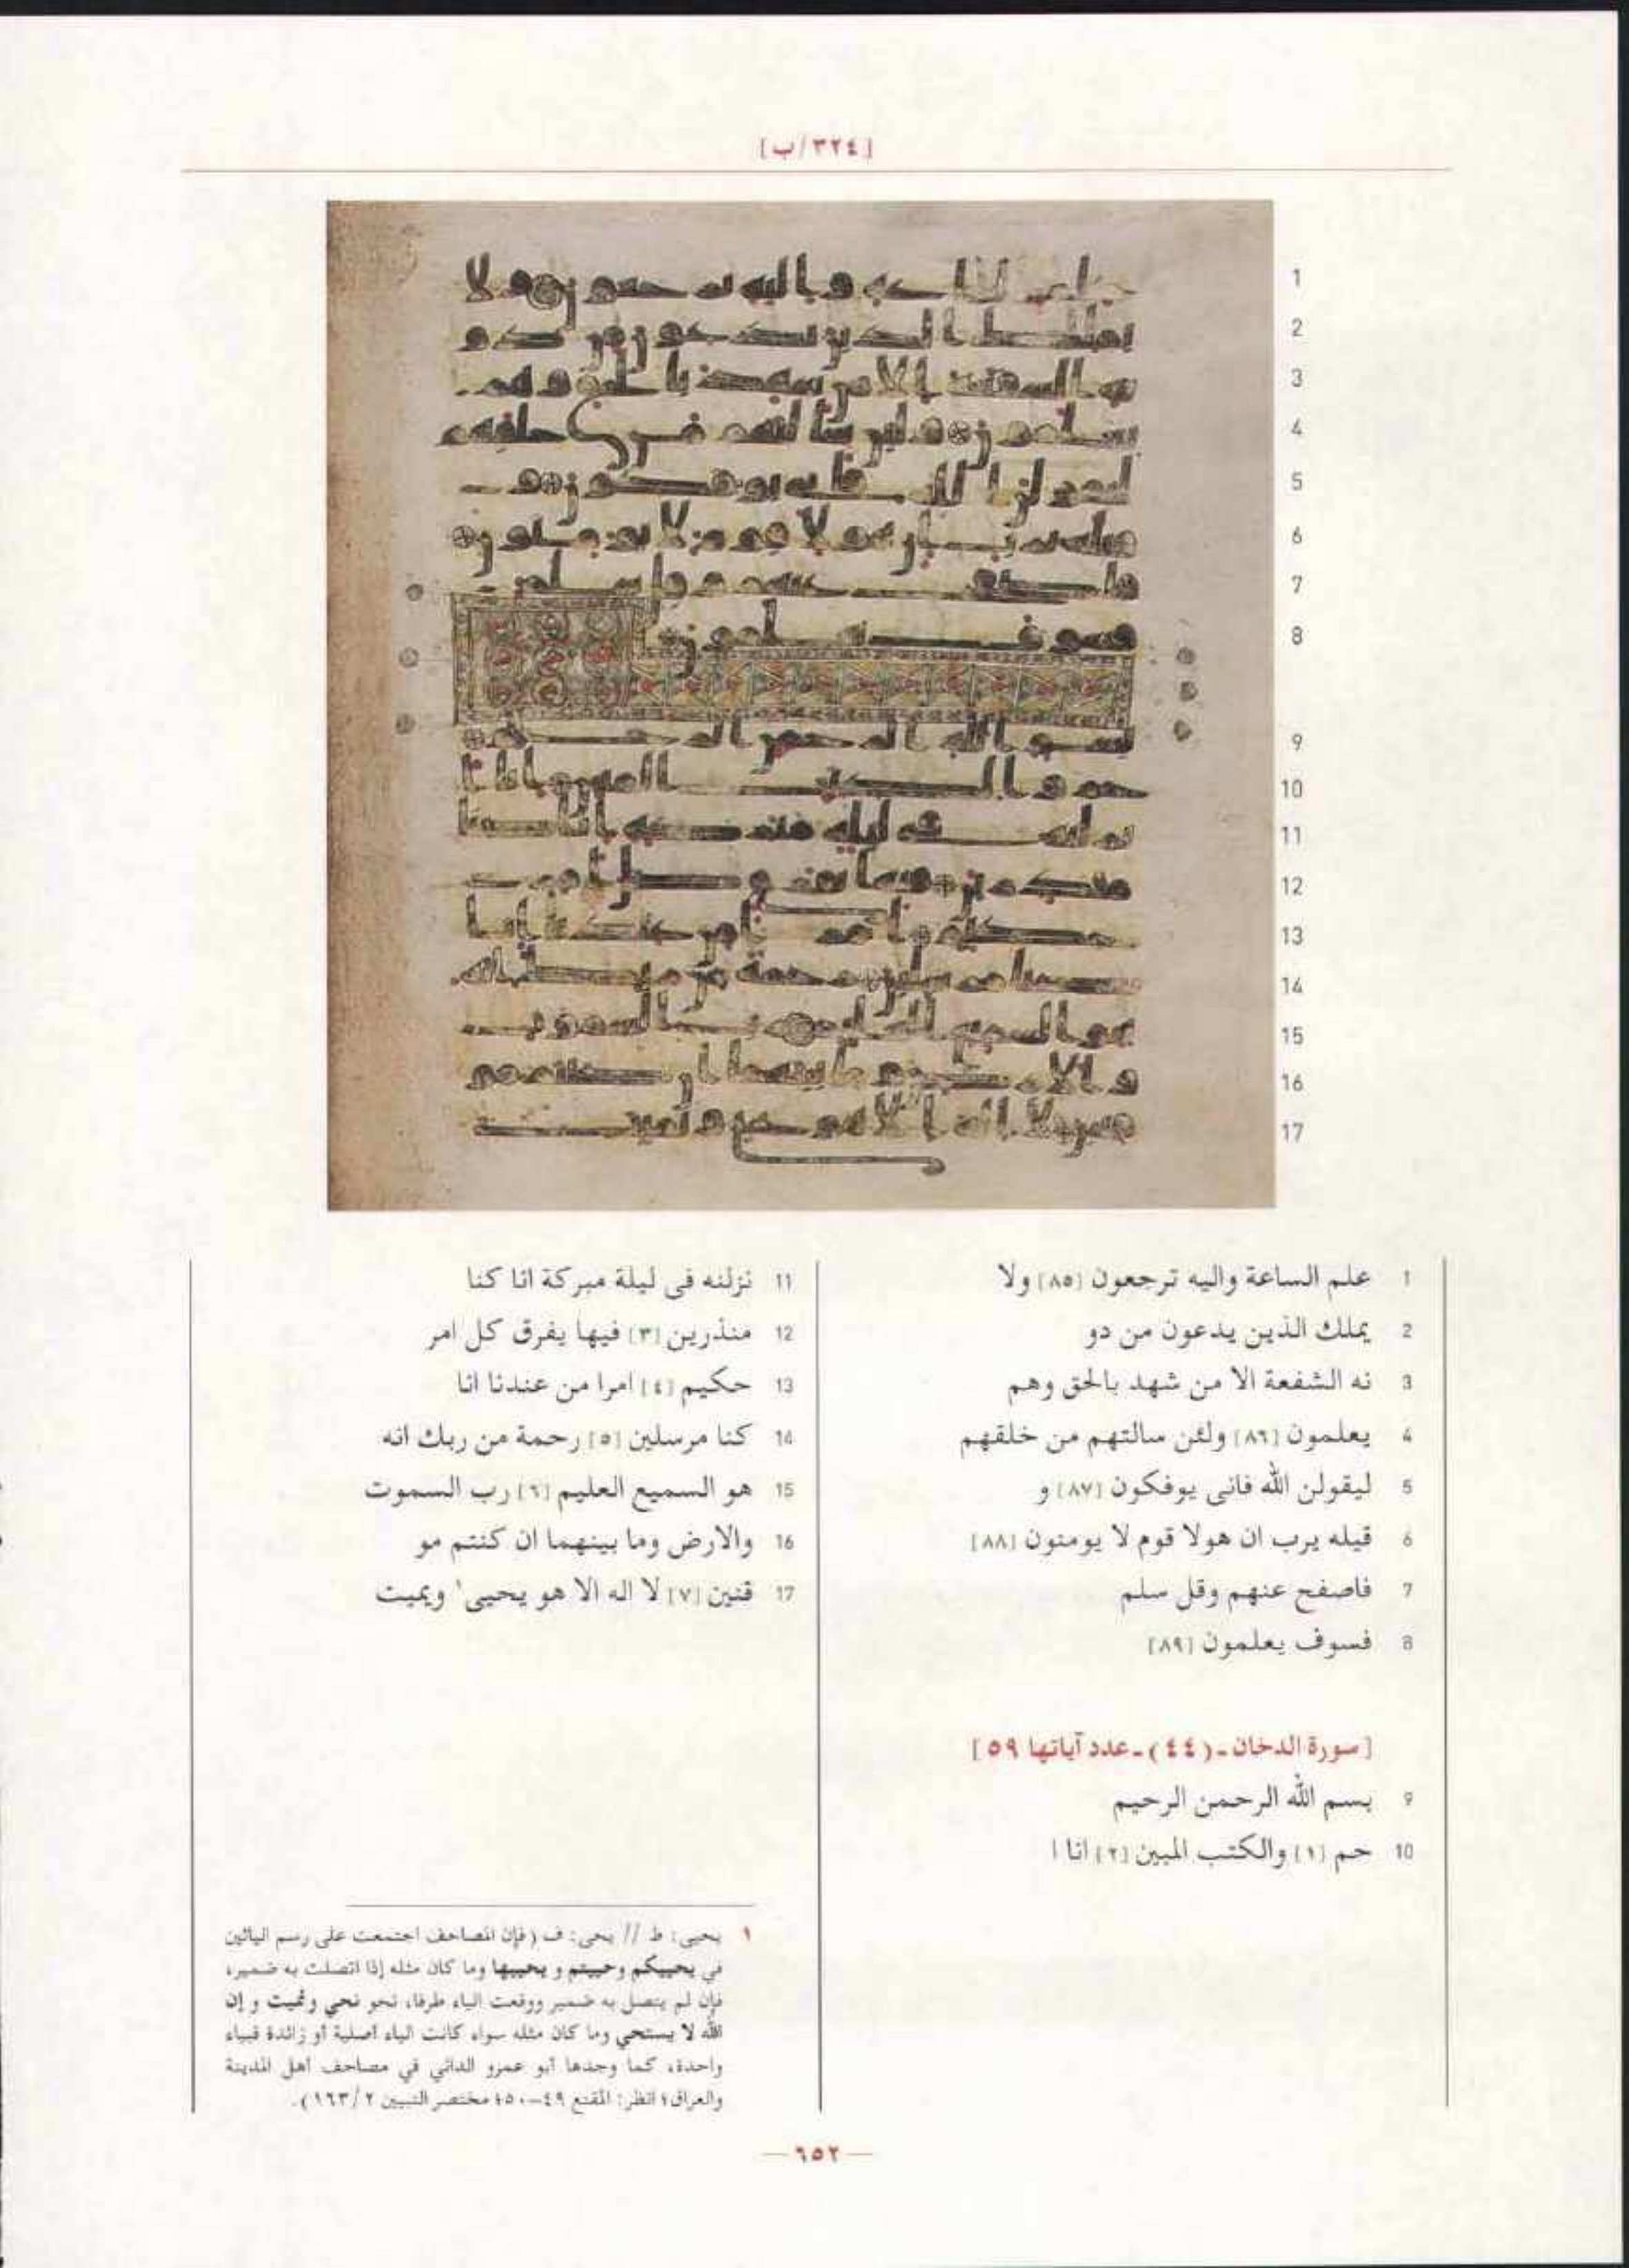 [٣٢٤/ب]
1 علم الساعة واليه ترجعون [٨٥] ولا
2 يملك الذين يدعون من دو
3 نه الشفعة الا من شهد بالحق وهم
4 يعلمون [٨٦] ولئن سالتهم من خلقهم
5 ليقولن الله فانى يوفكون [٨٧] و
6 قيله يرب ان هولا قوم لا يومنون [٨٨]
7 فاصفح عنهم وقل سلم
8 فسوف يعلمون [٨٩]
[سورة الدخان ـ (٤٤) ـ عدد آياتها ٥٩]
9 بسم الله الرحمن الرحيم
10 حم [١] والكتب المبين [٢] انا ا
11 نزلنه فى ليلة مبركة انا كنا
12 منذرين [٣] فيها يفرق كل امر
13 حكيم [٤] امرا من عندنا انا
14 كنا مرسلين [٥] رحمة من ربك انه
15 هو السميع العليم [٦] رب السموت
16 والارض وما بينهما ان كنتم مو
17 قنين [٧] لا اله الا هو يحيى١ ويميت
١ يحيى: ط // يحى: ف (فإن المصاحف اجتمعت على رسم اليائين
في يحييكم وحييتم و يحييها وما كان مثله إذا اتصلت به ضمير،
فإن لم يتصل به ضمير ووقعت الياء طرفا، نحو نحي ونميت و إن
الله لا يستحي وما كان مثله سواء كانت الياء أصلية أو زائدة فبياء
واحدة، كما وجدها أبو عمرو الداني في مصاحف أهل المدينة
والعراق؛ انظر: المقنع ٤٩-٥٠؛ مختصر التبيين ٢/١٦٣).
— ٦٥٢ —